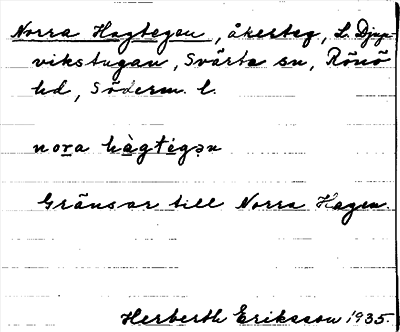 Norra Hagtegen, åkerteg, L. Djup-
vikstugan, Svärta sn, Rönö
hd, Söderm. l.
nora hàgtégən
Gränsar till Norra Hagen.
Herberth Eriksson 1935.